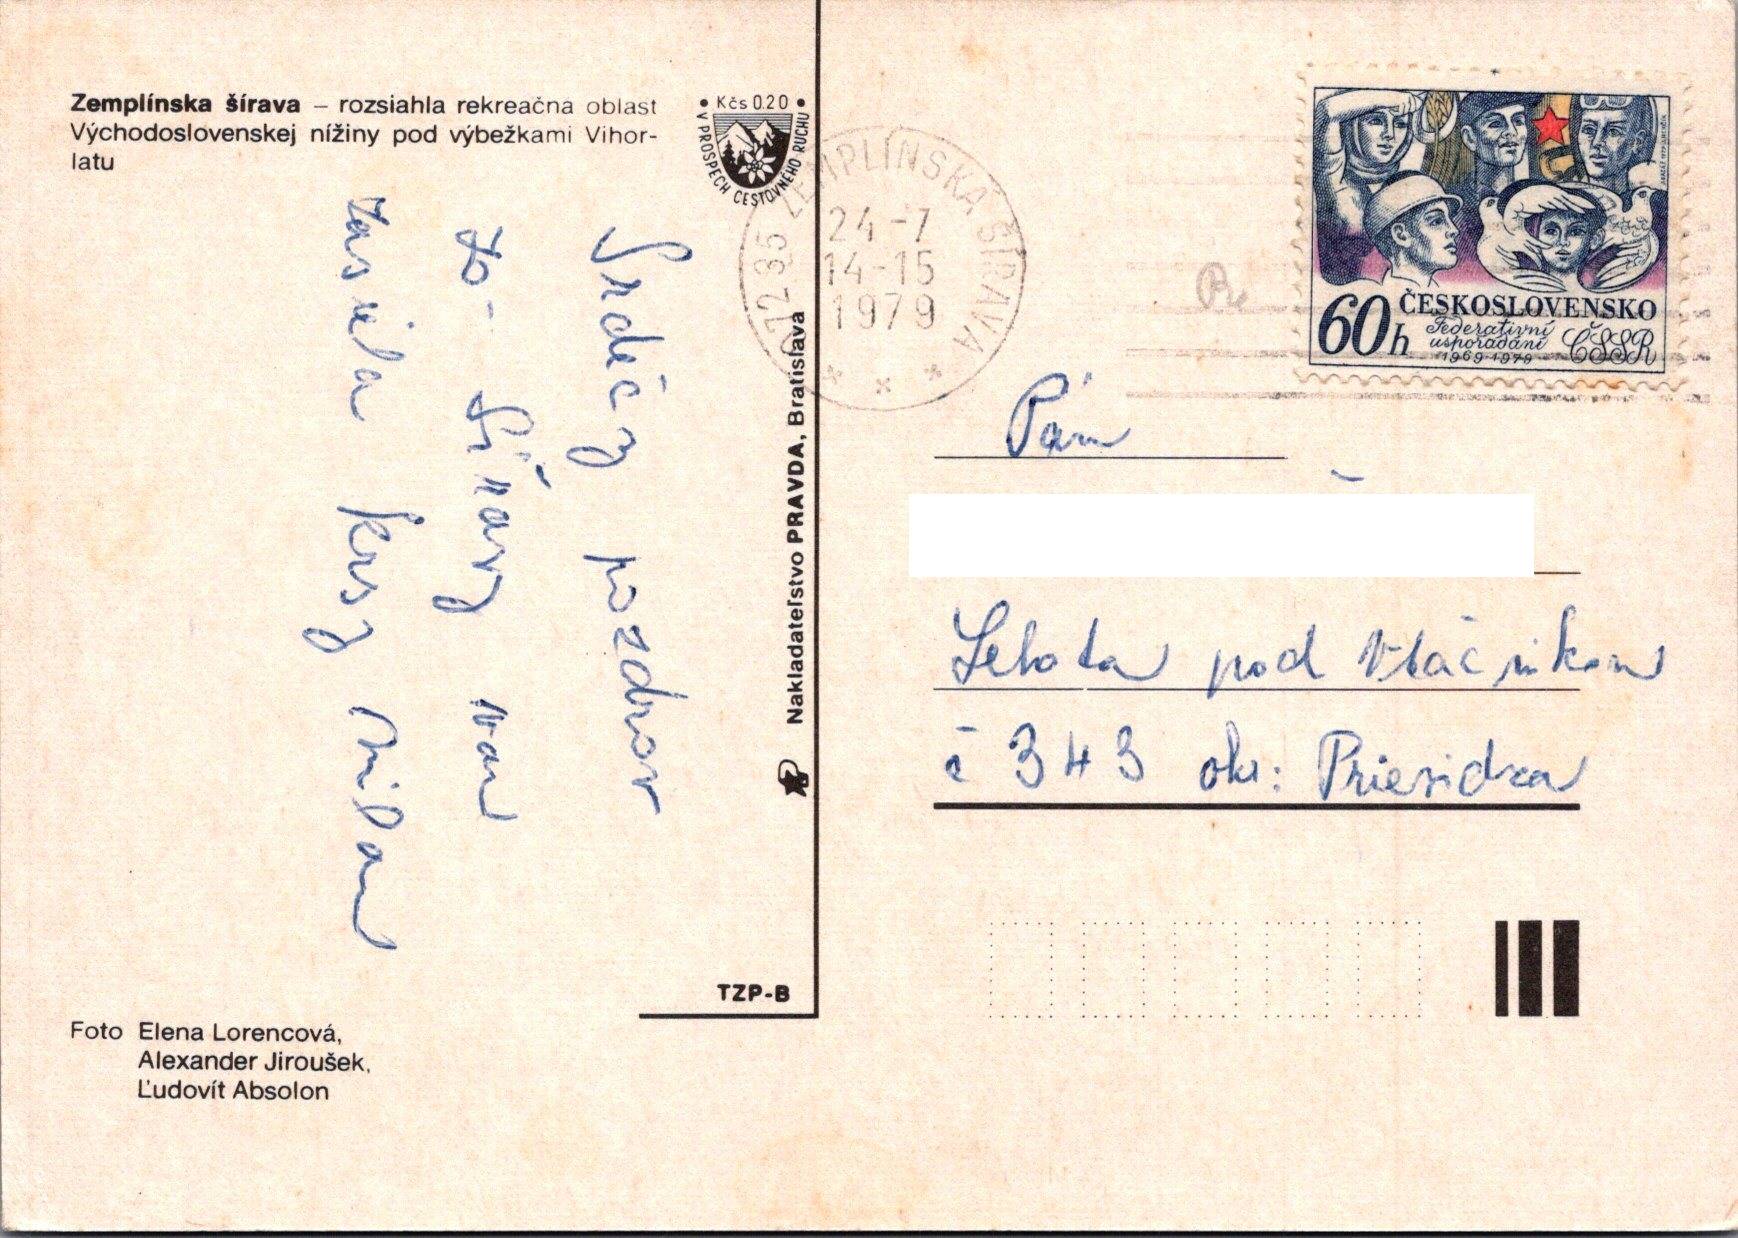 Zemplínska šírava – rozsiahla rekreačna oblast
Východoslovenskej nížiny pod výbežkami Vihor-
latu
• Kčs 0.20 •
V PROSPECH CESTOVNÉHO RUCHU
072 35 ZEMPLÍNSKA ŠÍRAVA
24 -7
14-15
1979
60h ČESKOSLOVENSKO
Federativní
uspořádání
1969-1979
ČSSR
Srdečny pozdrav
zo Šíravy vam
zasiela Milan
Nakladateľstvo PRAVDA, Bratislava
TZP-B
Pán
Lehota pod Vtáčnikom
č 343 okr: Prievidza
Foto Elena Lorencová,
Alexander Jiroušek,
Ľudovít Absolon